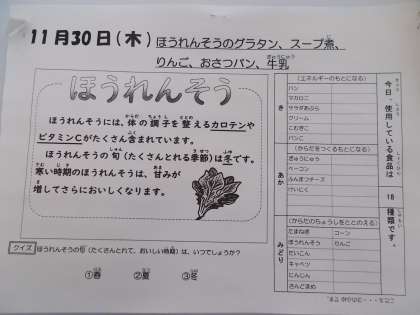 11月30日(木) ほうれんそうのグラタン、スープ煮、
りんご、おさつパン、牛乳
ほうれんそう
ほうれんそうには、体の調子を整えるカロテンや
ビタミンCがたくさん含まれています。
ほうれんそうの旬(たくさんとれる季節)は冬です。
寒い時期のほうれんそうは、甘みが
増してさらにおいしくなります。
クイズ ほうれんそうの旬(たくさんとれて、おいしい時期)は、いつでしょうか?
①春 ②夏 ③冬
今日、使用している食品は
18
種類です。
き
(エネルギーのもとになる)
パン
マカロニ
サラダあぶら
クリーム
こむぎこ
パンこ
あか
(からだをつくるもとになる)
ぎゅうにゅう
ベーコン
ふんまつチーズ
けいにく
みどり
(からだのちょうしをととのえる)
たまねぎ コーン
ほうれんそう りんご
だいこん
キャベツ
にんじん
さんどまめ